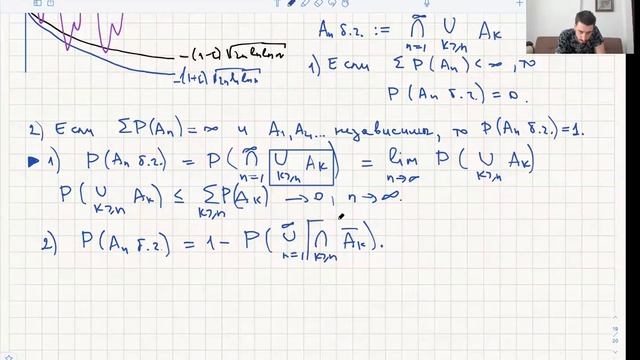 Aₙ б.ч. := ⋂_{n=1}^∞ ⋃_{k≥n} A_k
−(1−ε)√(2n ln ln n)
−(1+ε)√(2n ln ln n)
1) Если Σ P(Aₙ) < ∞, то
P(Aₙ б.ч.) = 0.
2) Если ΣP(Aₙ) = ∞ и A₁, A₂,... независимы, то P(Aₙ б.ч.) = 1.
▶ 1) P(Aₙ б.ч.) = P(⋂_{n=1}^∞ ⋃_{k≥n} A_k) = lim_{n→∞} P(⋃_{k≥n} A_k)
P(⋃_{k≥n} A_k) ≤ Σ_{k≥n} P(A_k) → 0, n→∞.
2) P(Aₙ б.ч.) = 1 − P(⋃_{n=1}^∞ ⋂_{k≥n} Ā_k).
19
20